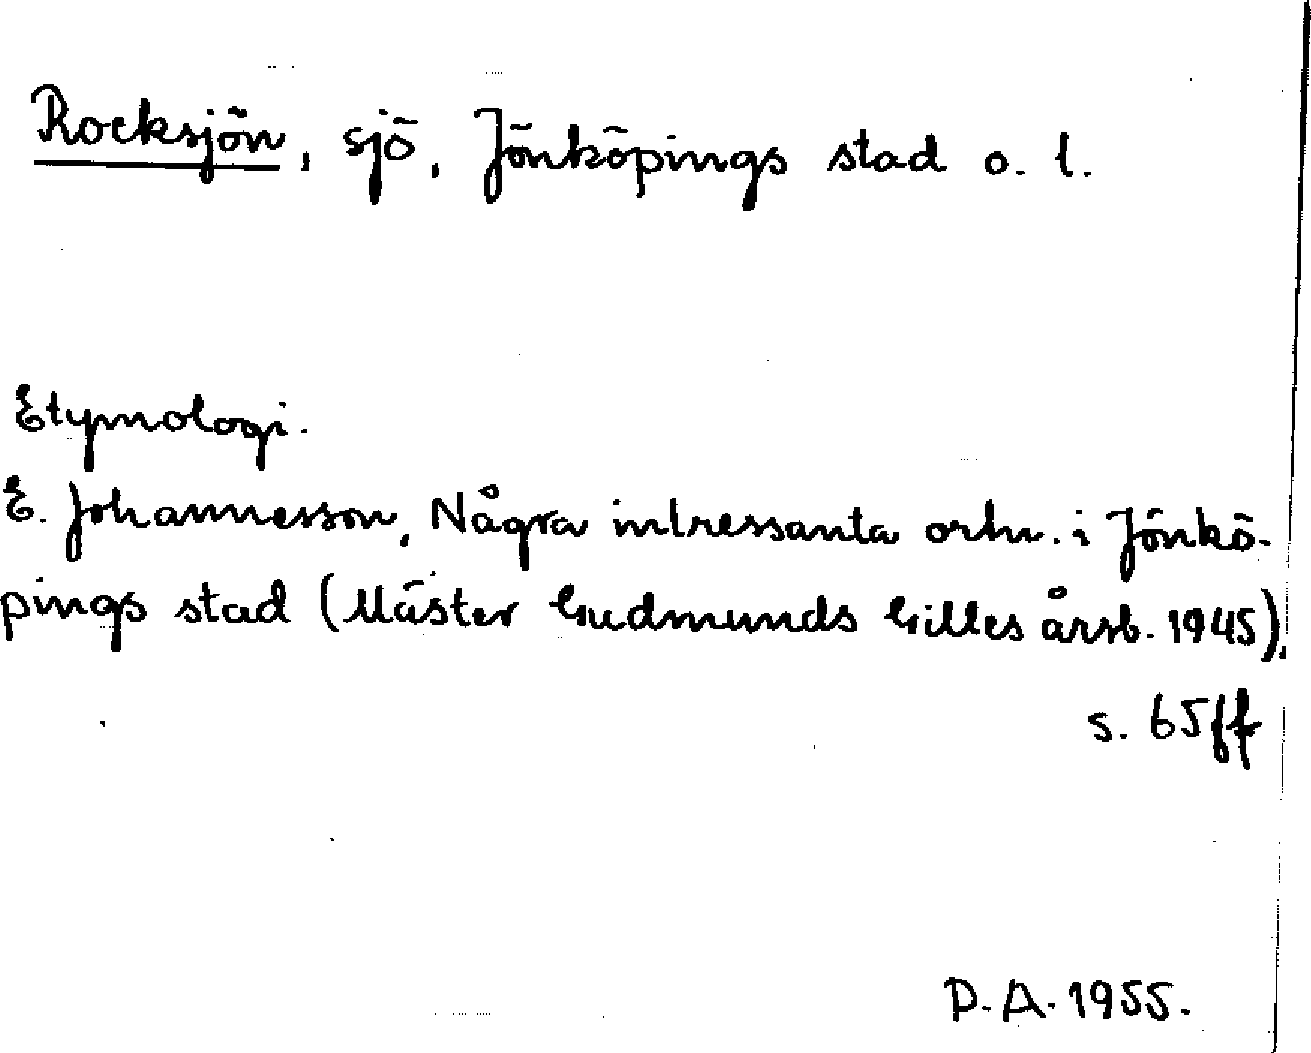 Rocksjön, sjö, Jönköpings stad o. l.
Etymologi.
E. Johannesson, Några intressanta ortn. i Jönkö-
pings stad (Mäster Gudmunds Gilles årsb. 1945),
s. 65ff
D. A. 1955.